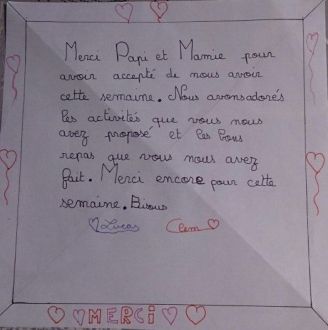 Merci Papi et Mamie pour
avoir accepté de nous avoir
cette semaine. Nous avonsadorés
les activités que vous nous
avez proposé et les bons
repas que vous nous avez
fait. Merci encore pour cette
semaine. Bisous
Lucas Clem
MERCI